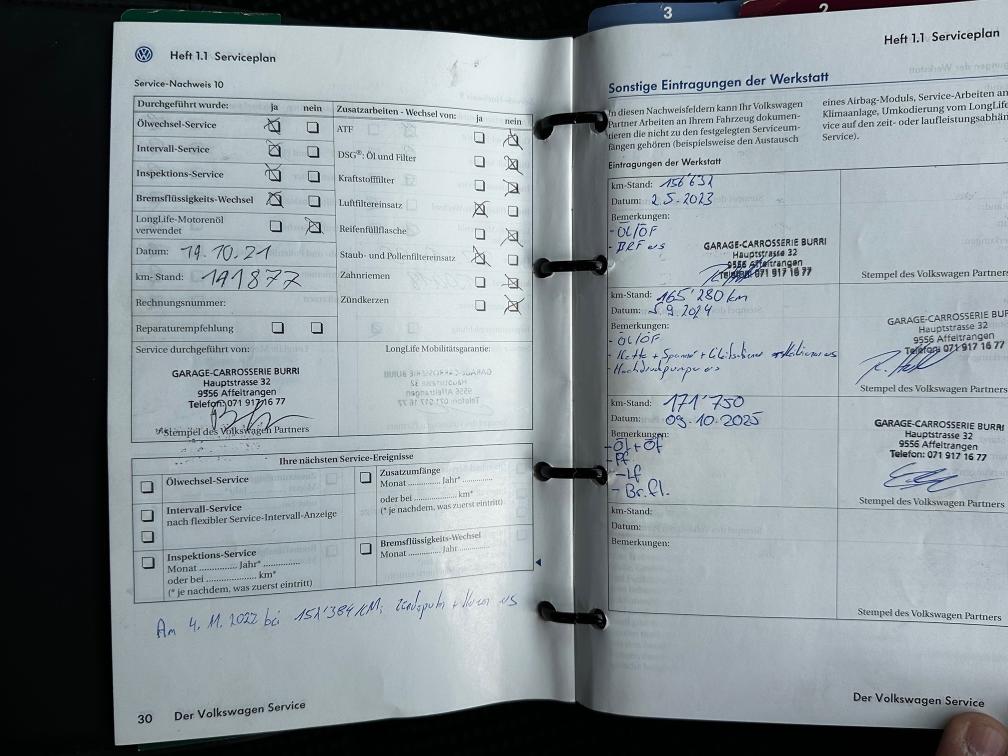 Heft 1.1 Serviceplan
Service-Nachweis 10
Durchgeführt wurde: ja nein
Ölwechsel-Service
Intervall-Service
Inspektions-Service
Bremsflüssigkeits-Wechsel
LongLife-Motorenöl
verwendet
Datum: 19.10.21
km- Stand: 141877
Rechnungsnummer:
Reparaturempfehlung
Zusatzarbeiten - Wechsel von: ja nein
ATF
DSG®: Öl und Filter
Kraftstofffilter
Luftfiltereinsatz
Reifenfüllflasche
Staub- und Pollenfiltereinsatz
Zahnriemen
Zündkerzen
Service durchgeführt von:
GARAGE-CARROSSERIE BURRI
Hauptstrasse 32
9556 Affeltrangen
Telefon: 071 917 16 77
Stempel des Volkswagen Partners
LongLife Mobilitätsgarantie:
Ihre nächsten Service-Ereignisse
Ölwechsel-Service
Intervall-Service
nach flexibler Service-Intervall-Anzeige
Inspektions-Service
Monat .............. Jahr* ..............
oder bei .................... km*
(* je nachdem, was zuerst eintritt)
Zusatzumfänge
Monat .............. Jahr* ..............
oder bei .................... km*
(* je nachdem, was zuerst eintritt)
Bremsflüssigkeits-Wechsel
Monat .............. Jahr ..............
Am 4. 11. 2022 bei 152'384 KM;
30 Der Volkswagen Service
3
2
Heft 1.1 Serviceplan
Sonstige Eintragungen der Werkstatt
In diesen Nachweisfeldern kann Ihr Volkswagen
Partner Arbeiten an Ihrem Fahrzeug dokumen-
tieren die nicht zu den festgelegten Serviceum-
fängen gehören (beispielsweise den Austausch
eines Airbag-Moduls, Service-Arbeiten an
Klimaanlage, Umkodierung vom LongLife
vice auf den zeit- oder laufleistungsabhän
Service).
Eintragungen der Werkstatt
km-Stand: 156'631
Datum: 2.5.2023
Bemerkungen:
- ÖL/ÖF
GARAGE-CARROSSERIE BURRI
Hauptstrasse 32
9556 Affeltrangen
Telefon: 071 917 16 77
Stempel des Volkswagen Partners
km-Stand: 165'280 km
Datum: 5.9.2024
Bemerkungen:
- ÖL/ÖF
- Kette + Spanner +
GARAGE-CARROSSERIE BUR
Hauptstrasse 32
9556 Affeltrangen
Telefon: 071 917 16 77
Stempel des Volkswagen Partners
km-Stand: 171'750
Datum: 09.10.2025
Bemerkungen:
- Öl + Öf
- Pf
- Lf
- Br.fl.
GARAGE-CARROSSERIE BURRI
Hauptstrasse 32
9556 Affeltrangen
Telefon: 071 917 16 77
Stempel des Volkswagen Partners
km-Stand:
Datum:
Bemerkungen:
Stempel des Volkswagen Partners
Der Volkswagen Service